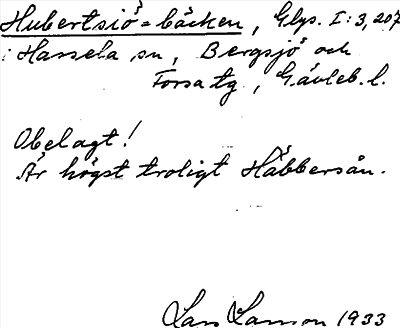 Hubertsjö-bäcken, Glgs. I:3, 207
i Hassela sn, Bergsjö och
Forsa tg, Gävleb. l.
Obelagt!
Är högst troligt Håbbersån.
Lars Larson 1933